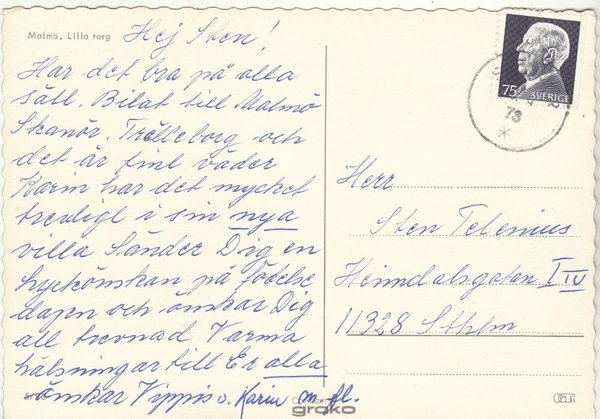 Malmö. Lilla torg
Hej Sten!
Har det bra på alla
sätt. Bilat till Malmö
Skanör. Trälleborg och
det är fint väder
Karin har det mycket
trevligt i sin nya
villa Sänder Dig en
lyckönskan på födelse
dagen och önskar Dig
all trevnad. Varma
hälsningar till Er alla
önskar Vippis o. Karin m. fl.
75 SVERIGE
73
Herr
Sten Telenius
Heimdalsgatan 1 IV
11328 Sthlm
groko